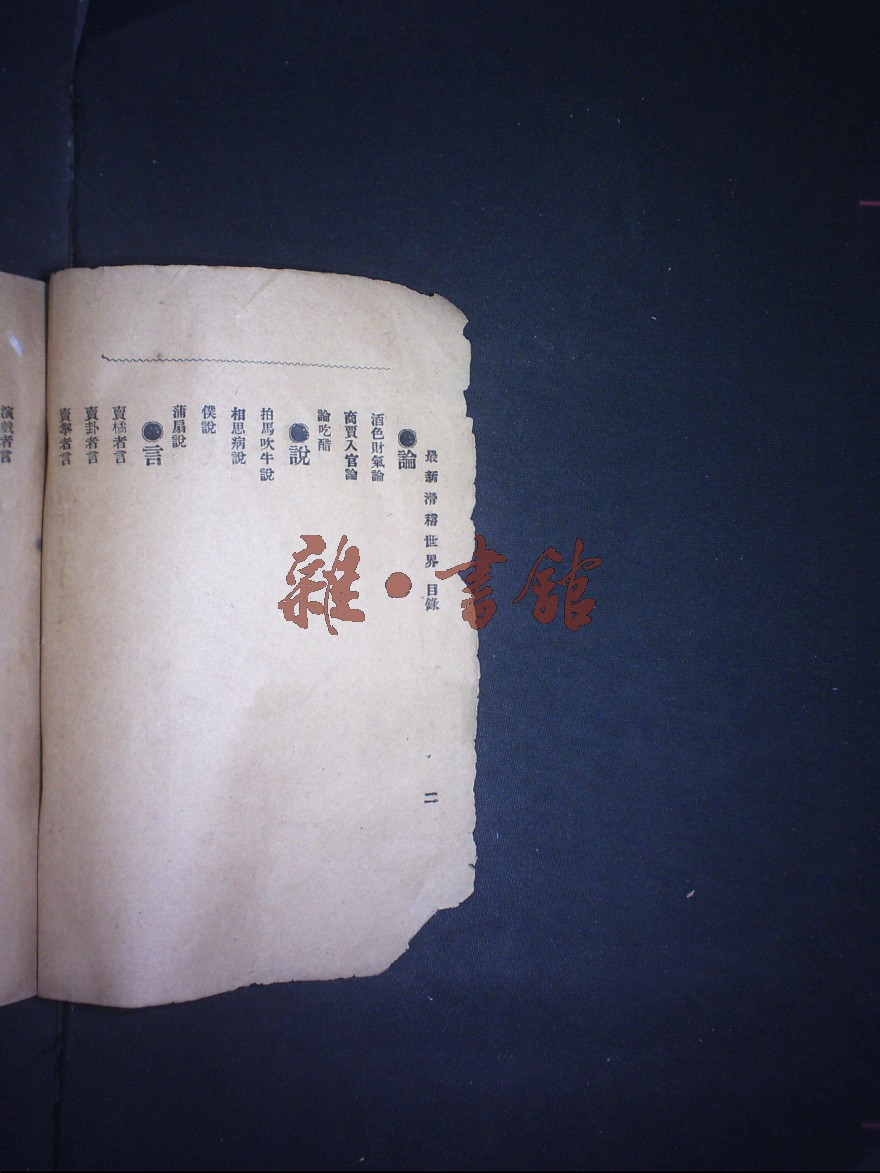 最新滑稽世界 目錄 二
●論
酒色財氣論
商賈入官論
論吃醋
●說
拍馬吹牛說
相思病說
僕說
蒲扇說
●言
賣橘者言
賣卦者言
賣拳者言
演戲者言
雜·書館